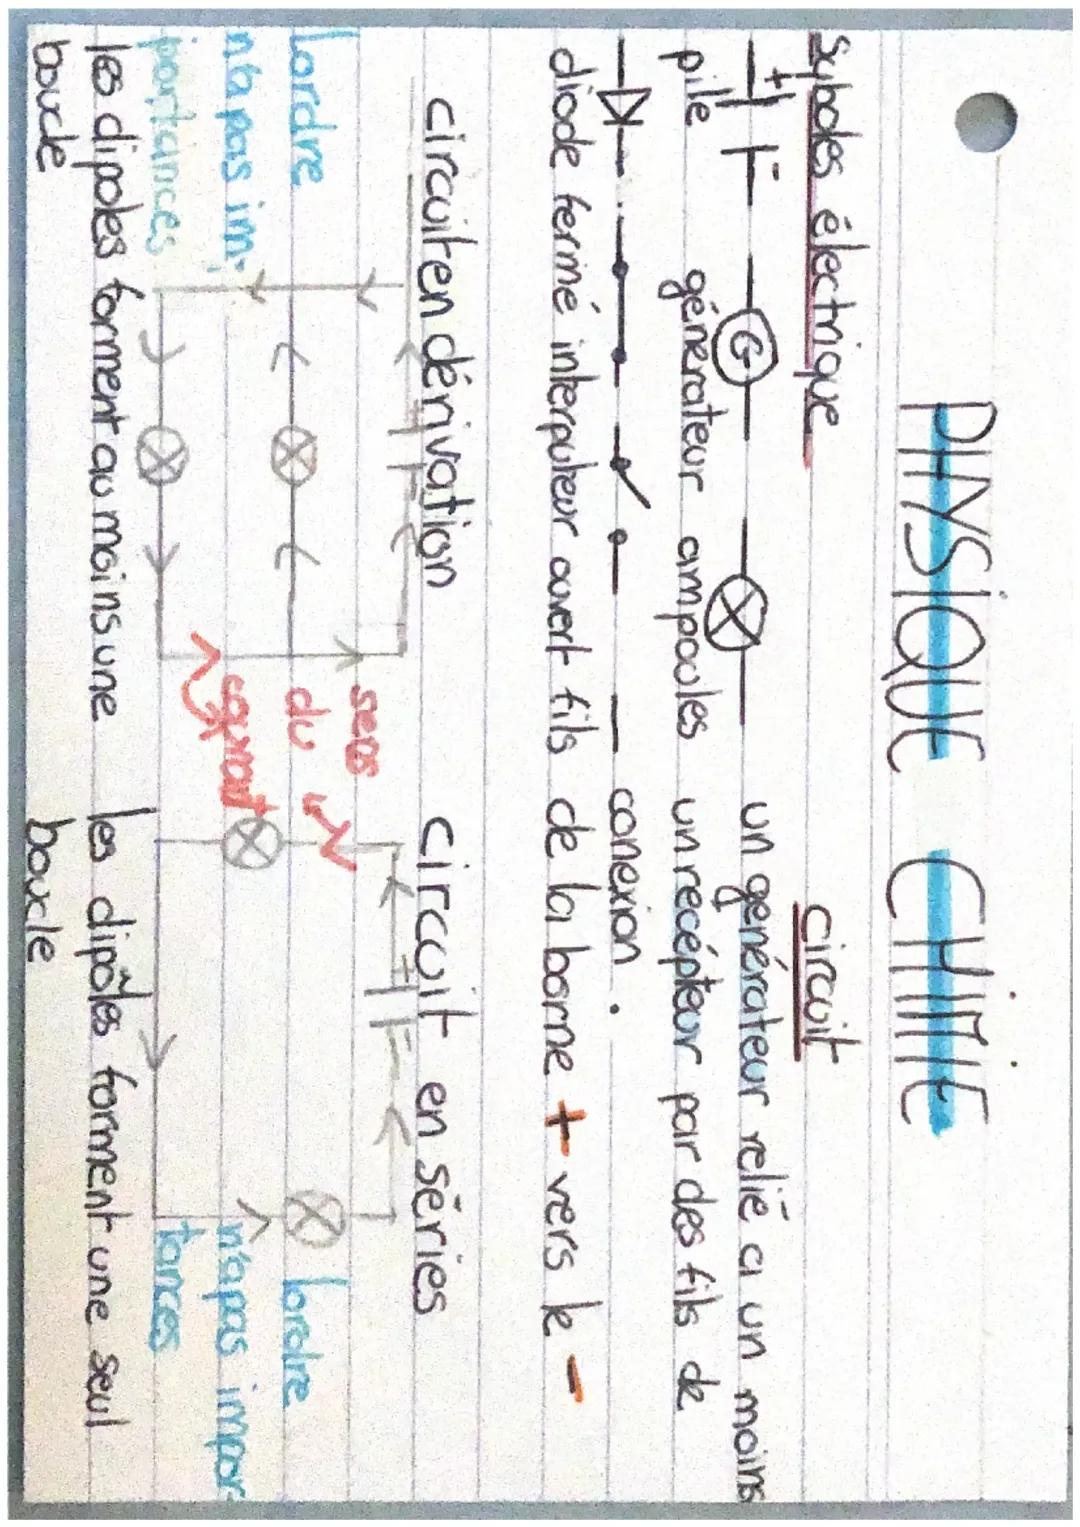 PHYSIQUE CHIMIE
Syboles électrique
circuit
+ -
G
un générateur relié a un moins
pile générateur ampoules un récepteur par des fils de
conexion.
diode fermé interputeur ouvert fils de la borne + vers le -
circuit en dérivation
circuit en séries
+ -
+ -
sens
du
courant
Lordre
n'a pas im-
portances
lordre
n'a pas impor-
tances
les dipoles forment au moins une
boucle
les dipôles forment une seul
boucle